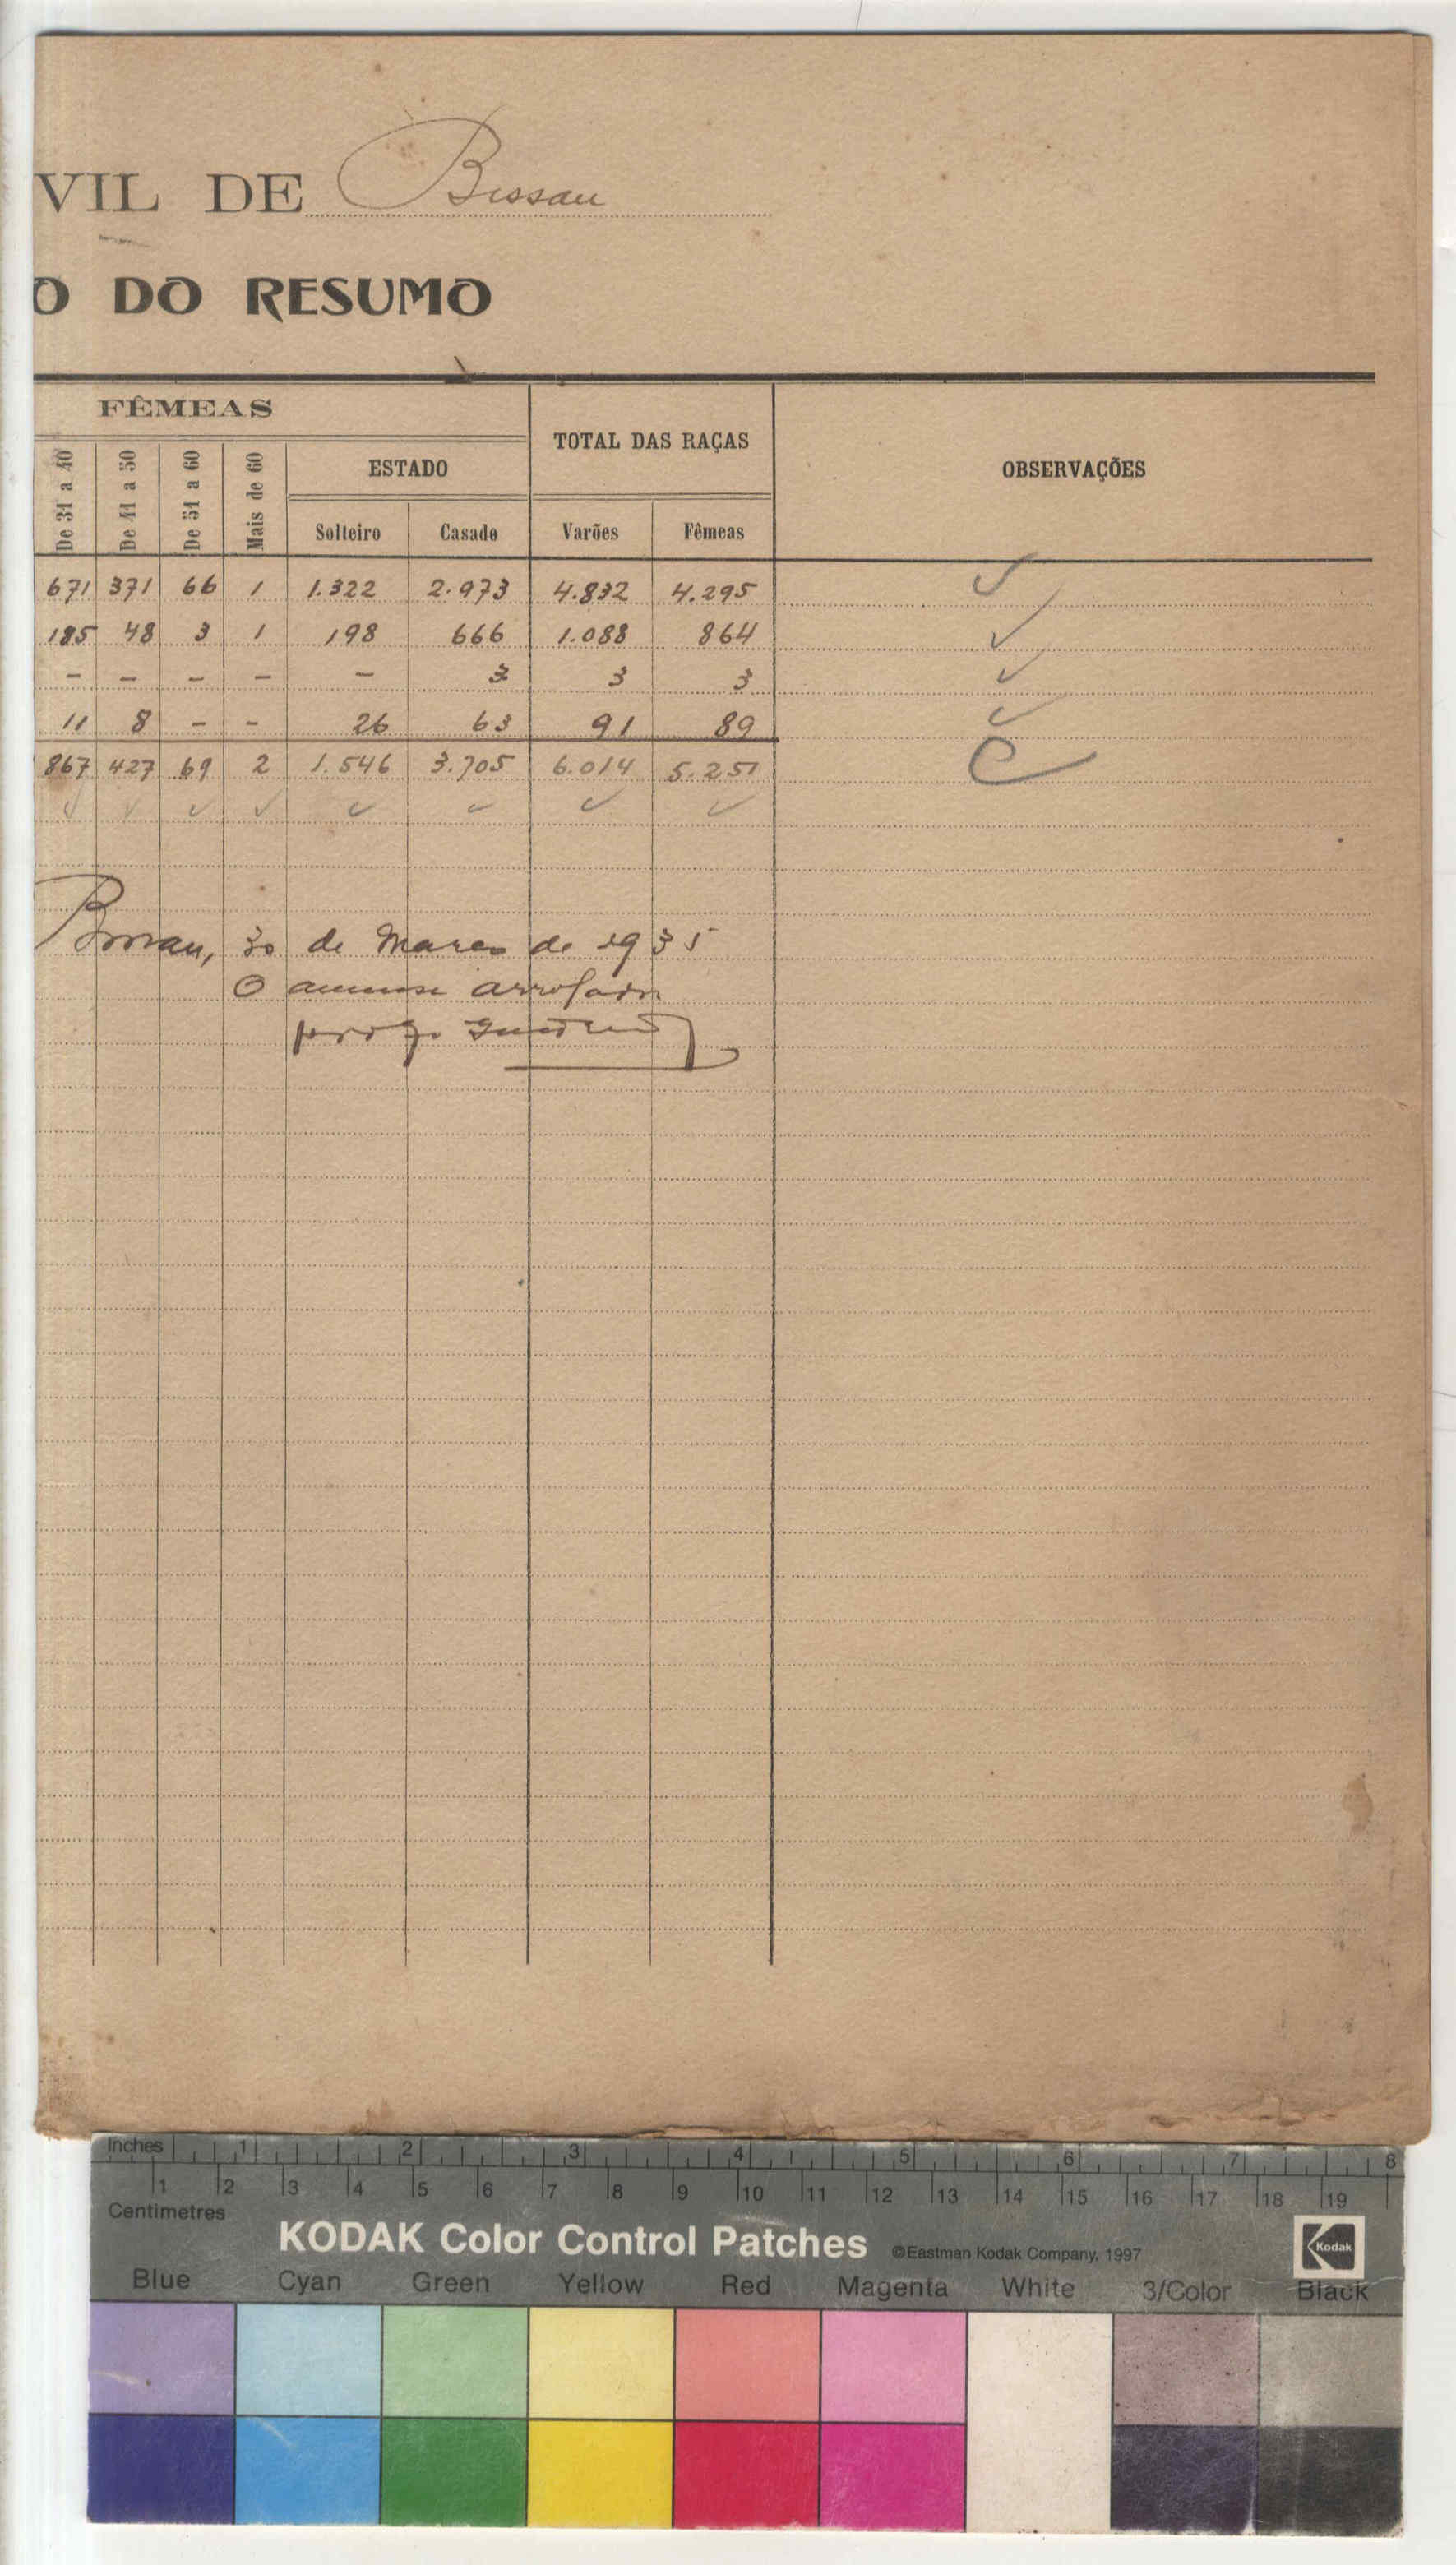 VIL DE Bissau
O DO RESUMO
FÊMEAS
TOTAL DAS RAÇAS
OBSERVAÇÕES
De 31 a 40
De 41 a 50
De 51 a 60
Mais de 60
ESTADO
Solteiro
Casado
Varões
Fêmeas
671 371 66 1 1.322 2.973 4.832 4.295
185 48 3 1 198 666 1.088 864
- - - - - 3 3 3
11 8 - - 26 63 91 89
867 427 69 2 1.546 3.705 6.014 5.251
Bissau, 30 de Março de 1935
O
Inches 1 2 3 4 5 6 7 8
1 2 3 4 5 6 7 8 9 10 11 12 13 14 15 16 17 18 19
Centimetres
KODAK Color Control Patches ©Eastman Kodak Company, 1997 Kodak
Blue Cyan Green Yellow Red Magenta White 3/Color Black